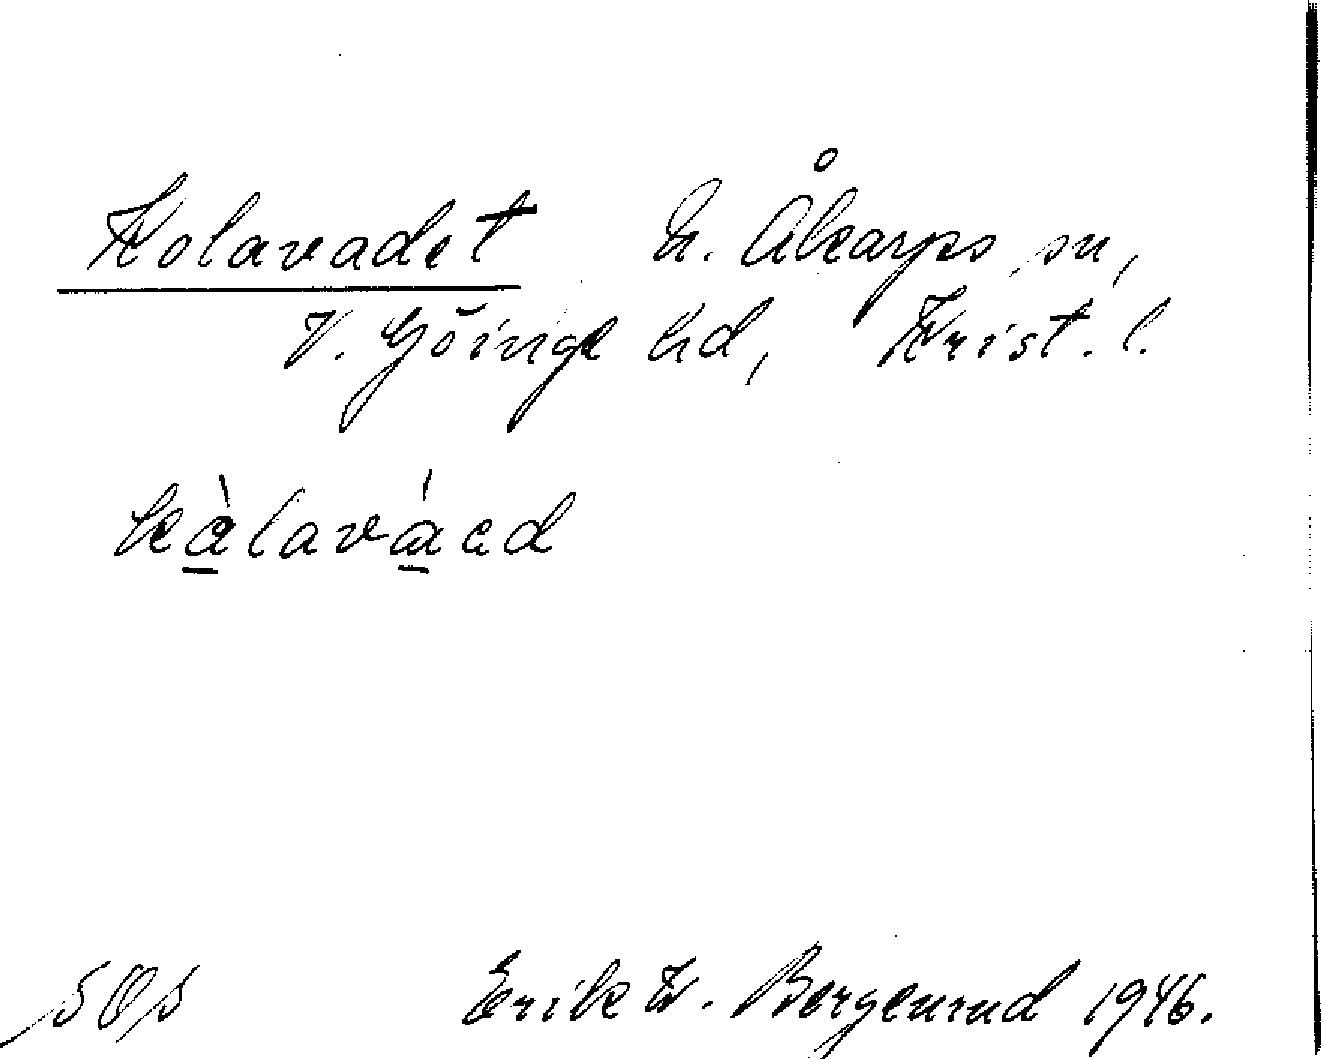 Kolavadet N. Åkarps sn,
V. Göinge hd, Krist. l.
kàlaváed
Erik W. Bergenrud 1946.